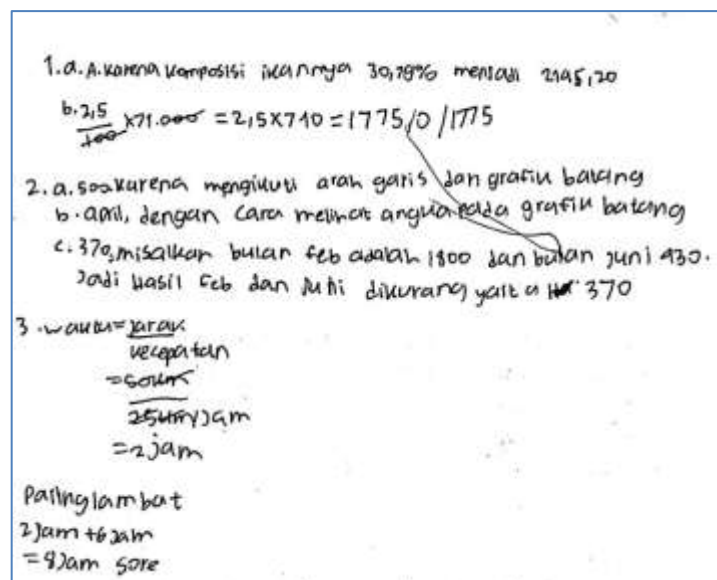 1. a. A. karena komposisi ikannya 30,78% menjadi 2195,20
b. 2,5
100 x 71.000 = 2,5 x 710 = 1775,0 / 1775
2. a. 500 karena mengikuti arah garis dan grafik batang
b. april, dengan cara melihat angka pada grafik batang
c. 370, misalkan bulan feb adalah 1800 dan bulan juni 430.
Jadi hasil feb dan juni dikurang yaitu 370
3. waktu = jarak
kecepatan
= 50km
25km/jam
= 2 jam
Paling lambat
2 jam + 6 jam
= 8 jam sore